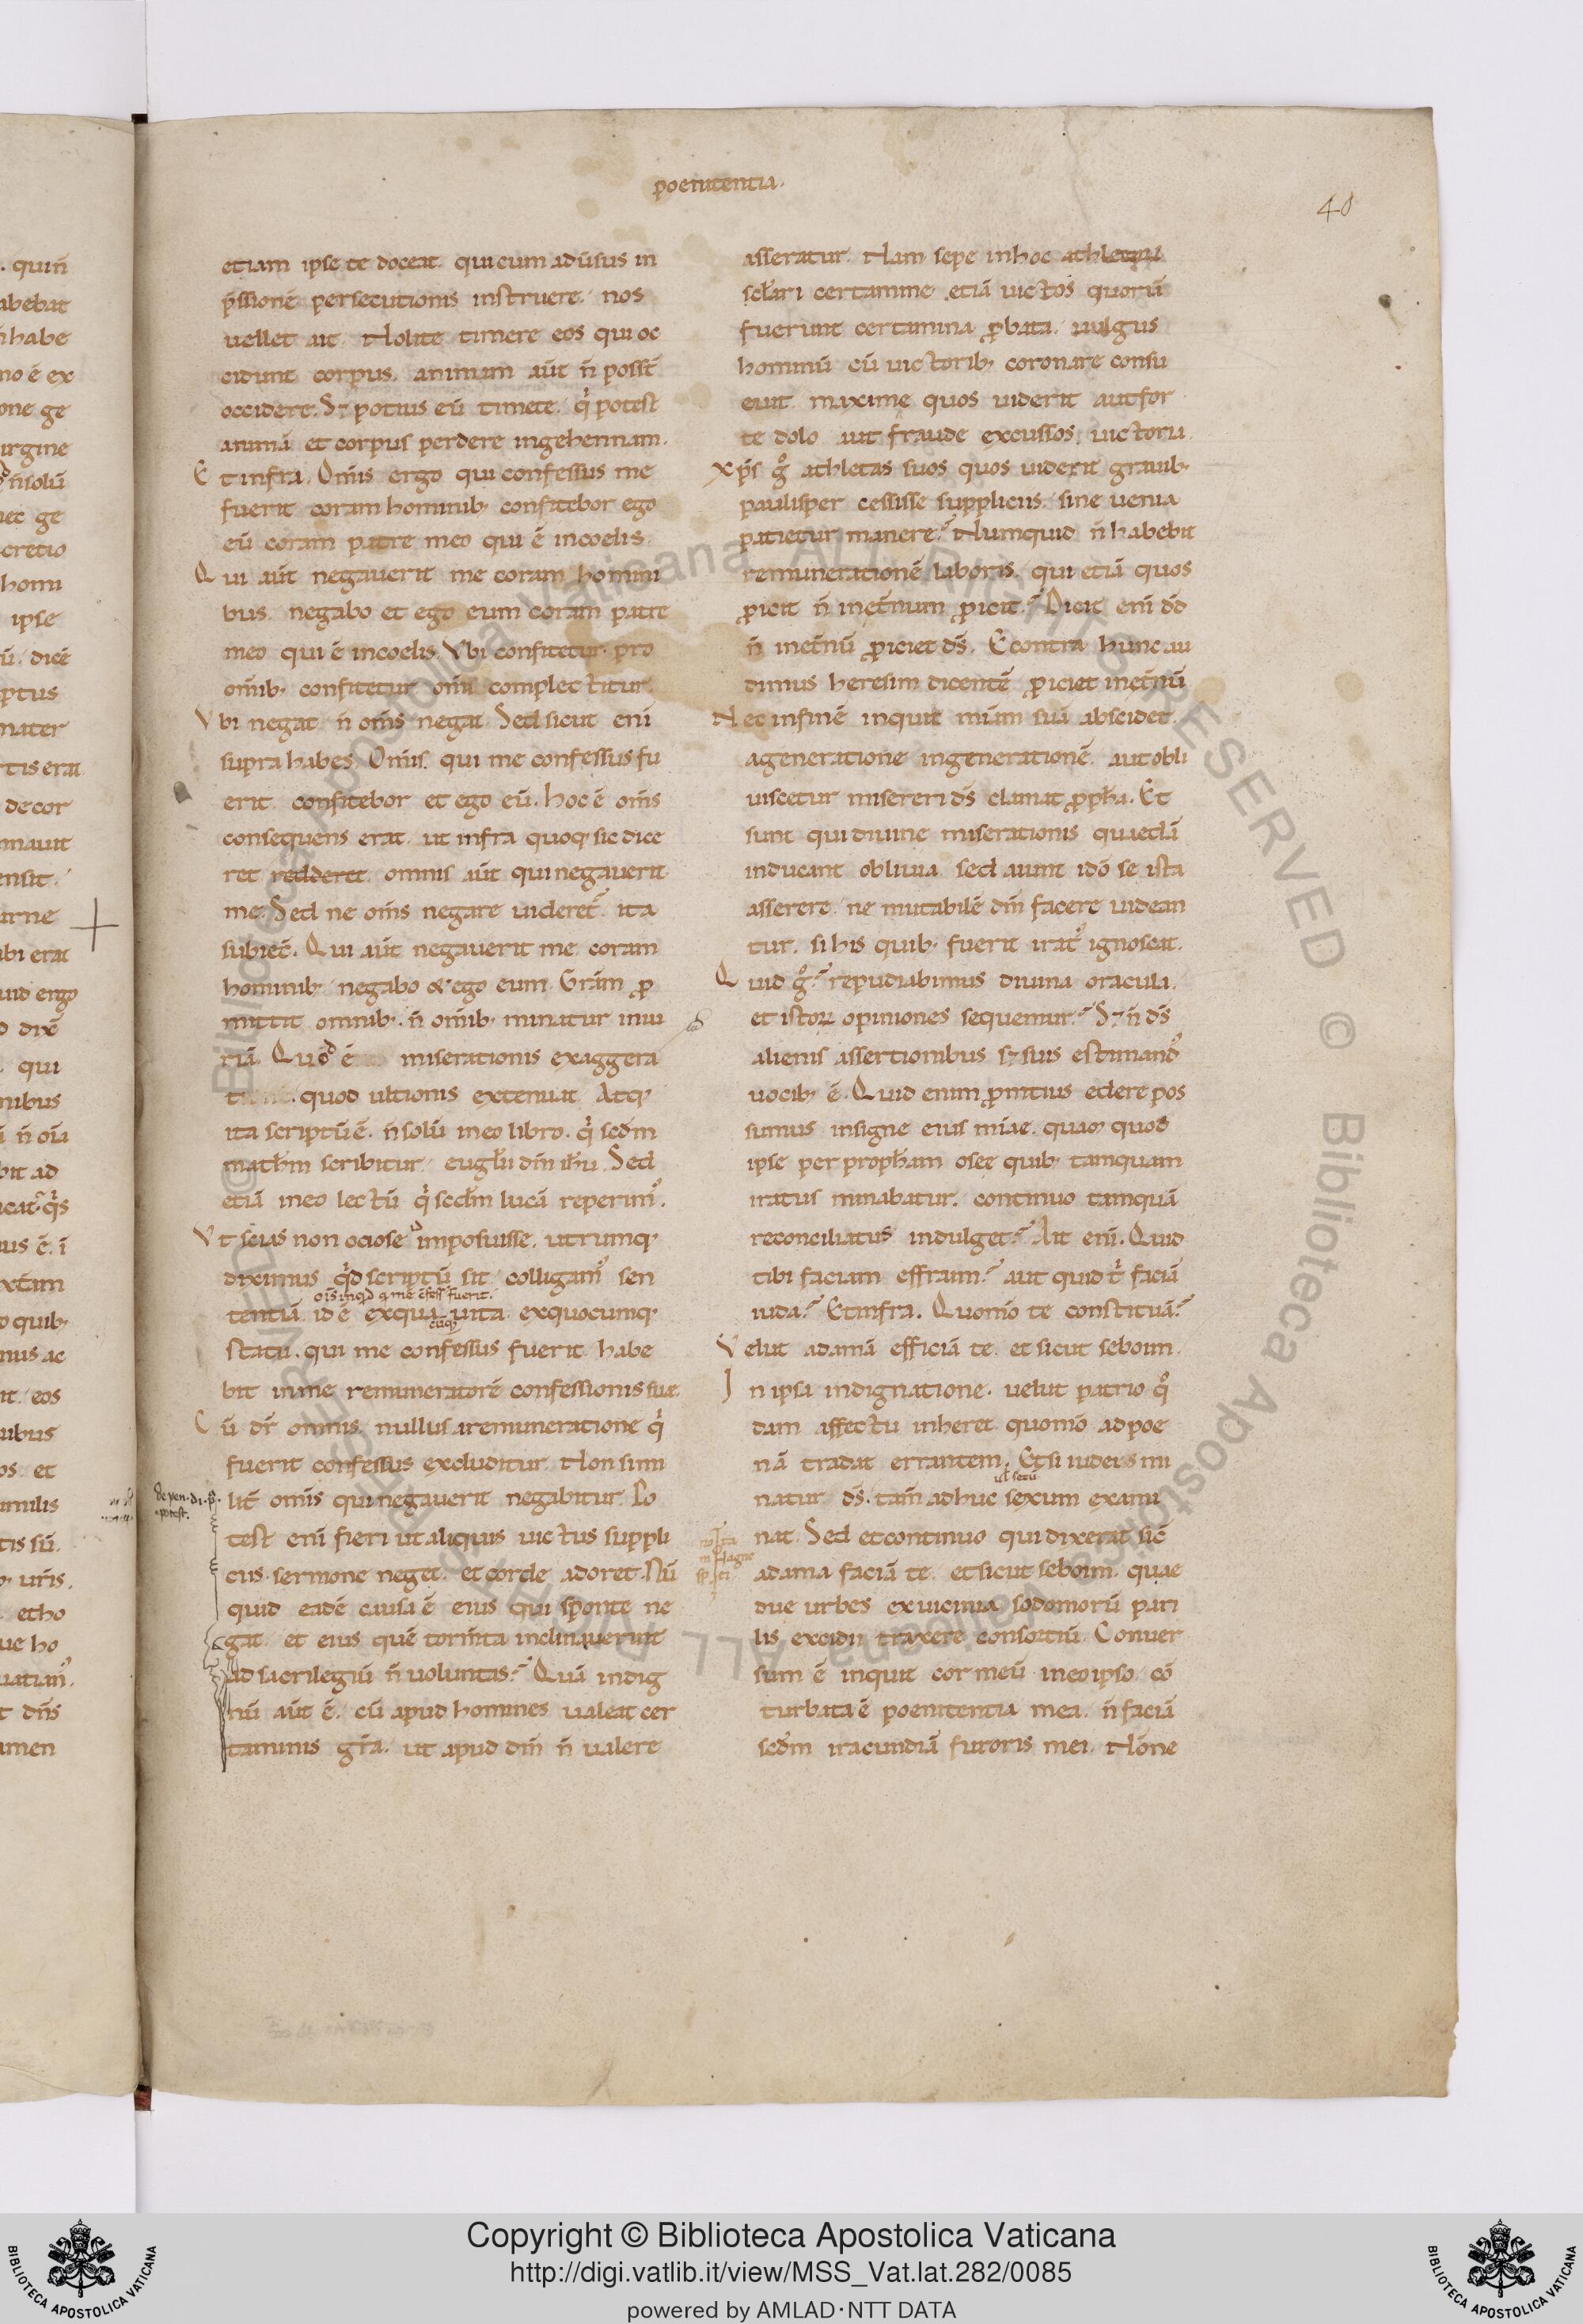 poenitentia.
40
etiam ipse te doceat. qui cum adūsus in
p̄ssionē persecutionis instruere. nos
uellet ait. Nolite timere eos qui oc
cidunt corpus. animam aūt n̄ posst̄
occidere. S; potius eū timete. q̇ potest
animā et corpus perdere ingehennam.
Et infra. Om̄is ergo qui confessus me
fuerit coram hominib; confitebor ego
eū coram patre meo qui ē incoelis.
Qui aūt negauerit me coram homini
bus. negabo et ego eum coram patre
meo qui ē incoelis. Vbi confitetur. pro
om̄ib; confitetur. om̄i complectitur.
Vbi negat n̄ om̄s negat. Sed sicut eni
supra habes. Om̄is. qui me confessus fu
erit. confitebor et ego eū. hoc ē om̄s
consequens erat. ut infra quoq; sic dice
ret redderet. omnis aūt qui negauerit
me. Sed ne om̄s negare uideret̄. ita
subiec̄. Qui aūt negauerit me coram
hominib; negabo & ego eum. Grām p̄
mittit omnib;. n̄ om̄ib; minatur iniu
riā. Quod ē miserationis exaggera
t quod ultionis extenuat. Atq;
ita scriptū ē. n̄ solū ineo libro. q̇ sed̄m
math̄m scribitur. eugl̄ii dn̄i ih̄u. Sed
etiā ineo lectū q̇ secd̄m lucā reperim᾽.
Vt scias non ociose imposuisse. utrumq;
diximus q̇d scriptū sit. colligam᾽ sen
om̄s inq̇d q me c̄fess᾽ fuerit.
tentiā. id ē exqua uita. exquocumq;
cūq;
statu. qui me confessus fuerit. habe
bit inme remuneratorē confessionis suę.
Cū dr̄ omnis. nullus aremuneratione q̇
fuerit confessus excluditur. Non simi
de pen. di. p̄.
potest.
lit̄ om̄is qui negauerit negabitur. Po
test eni fieri ut aliquis uictus suppli
ciis. sermone neget. et corde adoret. Nū
quid eadē causa ē eius qui sponte ne
gat. et eius quē torm̄ta inclinauerunt
ad sacrilegiū n̄ uoluntas? Quā indig
nū aūt ē. cū apud homines ualeat cer
taminis gr̄a. ut apud dm̄ n̄ ualere
asseratur. Nam sepe inhoc athletarū
scl̄ari certamine. etiā uictos quorū
fuerunt certamina p̄bata. uulgus
hominū cū uictorib; coronare consu
euit. maxime quos uiderit aut for
te dolo aut fraude excussos uictoria.
Xp̄s g̊ athletas suos quos uiderit grauib;
paulisper cessisse suppliciis. sine uenia
patietur manere? Numquid n̄ habebit
remunerationē laboris. qui etiā quos
p̄icit n̄ inet̄num p̄icit? Dicit eni dd̄
n̄ inet̄nū p̄iciet ds̄. Econtra hunc au
dimus heresim dicentē p̄iciet inet̄nū
Nec infinē inquit mi᷒am suā abscidet
ageneratione ingenerationē. aut obli
uiscetur misereri ds̄ clamat p̄ph̄a. Et
sunt qui diuine miserationis quiedā
inducant obliuia. sed aiunt ido᷒ se ista
asserere. ne mutabilē dm̄ facere uidean
tur. si his quib; fuerit irat᾽ ignoscat.
Quid g̊? repudiabimus diuina oracula.
et istoꝝ opiniones sequemur? S; n̄ ds̄
alienis assertionibus s; suis estimand᾽
uocib; ē. Quid enim p̄mtius edere pos
sumus insigne eius mi᷒ae. quā quod
ipse per proph̄am osee quib; tamquam
iratus minabatur. continuo tamquā
reconciliatus indulget? Ait eni. Quid
tibi faciam effraim? aut quid t̄ faciā
iuda? Et infra. Quomo᷒ te constituā?
Velut adamā efficiā te. et sicut seboim.
In ipsa indignatione. uelut patrio q̊
dam affectu inheret quomo᷒ ad poe
nā tradat errantem. Et si iudeis mi
ul̄ secū
natur ds̄. tam̄ adhuc sexum exami
nat. Sed et continuo qui dixerat sic̄
adama faciā te. et sicut seboim. quae
due urbes exuicinia sodomorū pari
lis excidii traxere consortiū. Conuer
sum ē inquit cor meū ineo ipso. cō
turbata ē poenitentia mea. n̄ faciā
sed̄m iracundiā furoris mei. Nōne
Copyright © Biblioteca Apostolica Vaticana
http://digi.vatlib.it/view/MSS_Vat.lat.282/0085
powered by AMLAD·NTT DATA
BIBLIOTECA APOSTOLICA VATICANA
BIBLIOTECA APOSTOLICA VATICANA